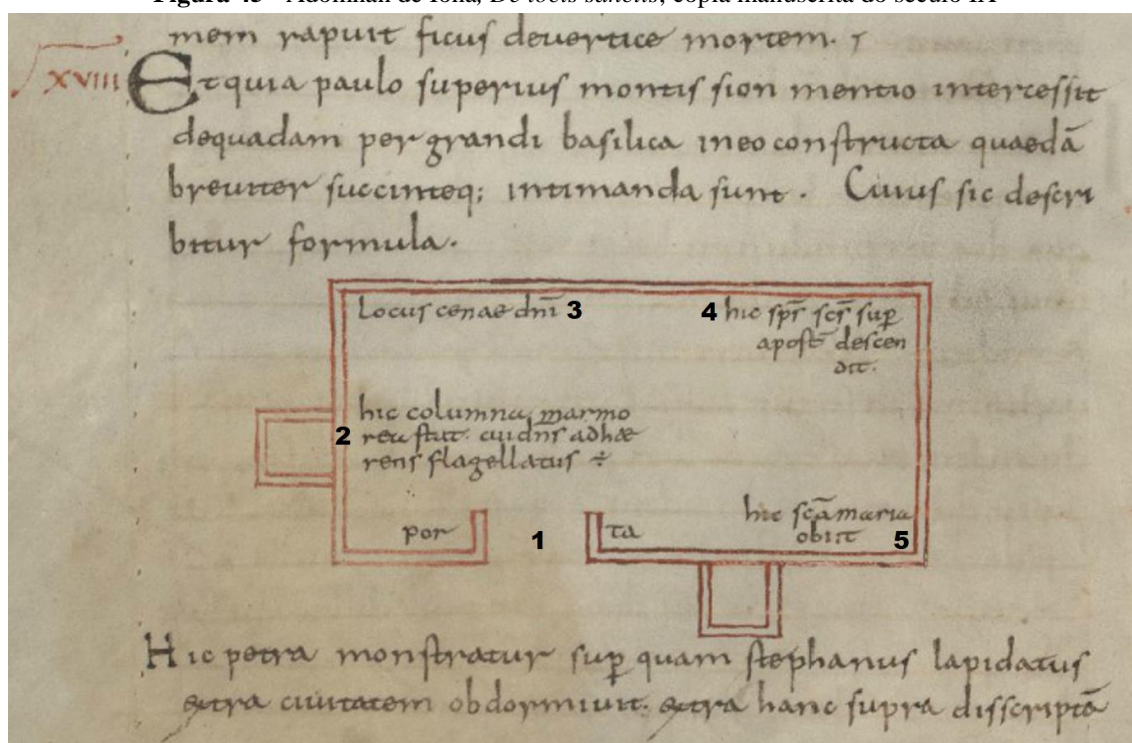 Figura - Adomnán de Iona, De locis sanctis, cópia manuscrita do século IX
mem rapuit ficus deuertice mortem.
XVIII Et quia paulo superius montis sion mentio intercessit
dequadam per grandi basilica ineo constructa quaedā
breuiter succinteq; intimanda sunt. Cuius sic descri
bitur formula.
Locus cenae dnī 3
4 hic sps̄ scs̄ sup
apost̄ descen
dit.
2 hic columna marmo
rea stat. cui dns̄ adhæ
rens flagellatus ÷
por 1 ta
hic scā maria
obiit 5
Hic petra monstratur sup quam stephanus lapidatus
extra ciuitatem obdormiuit. extra hanc supra disscriptā